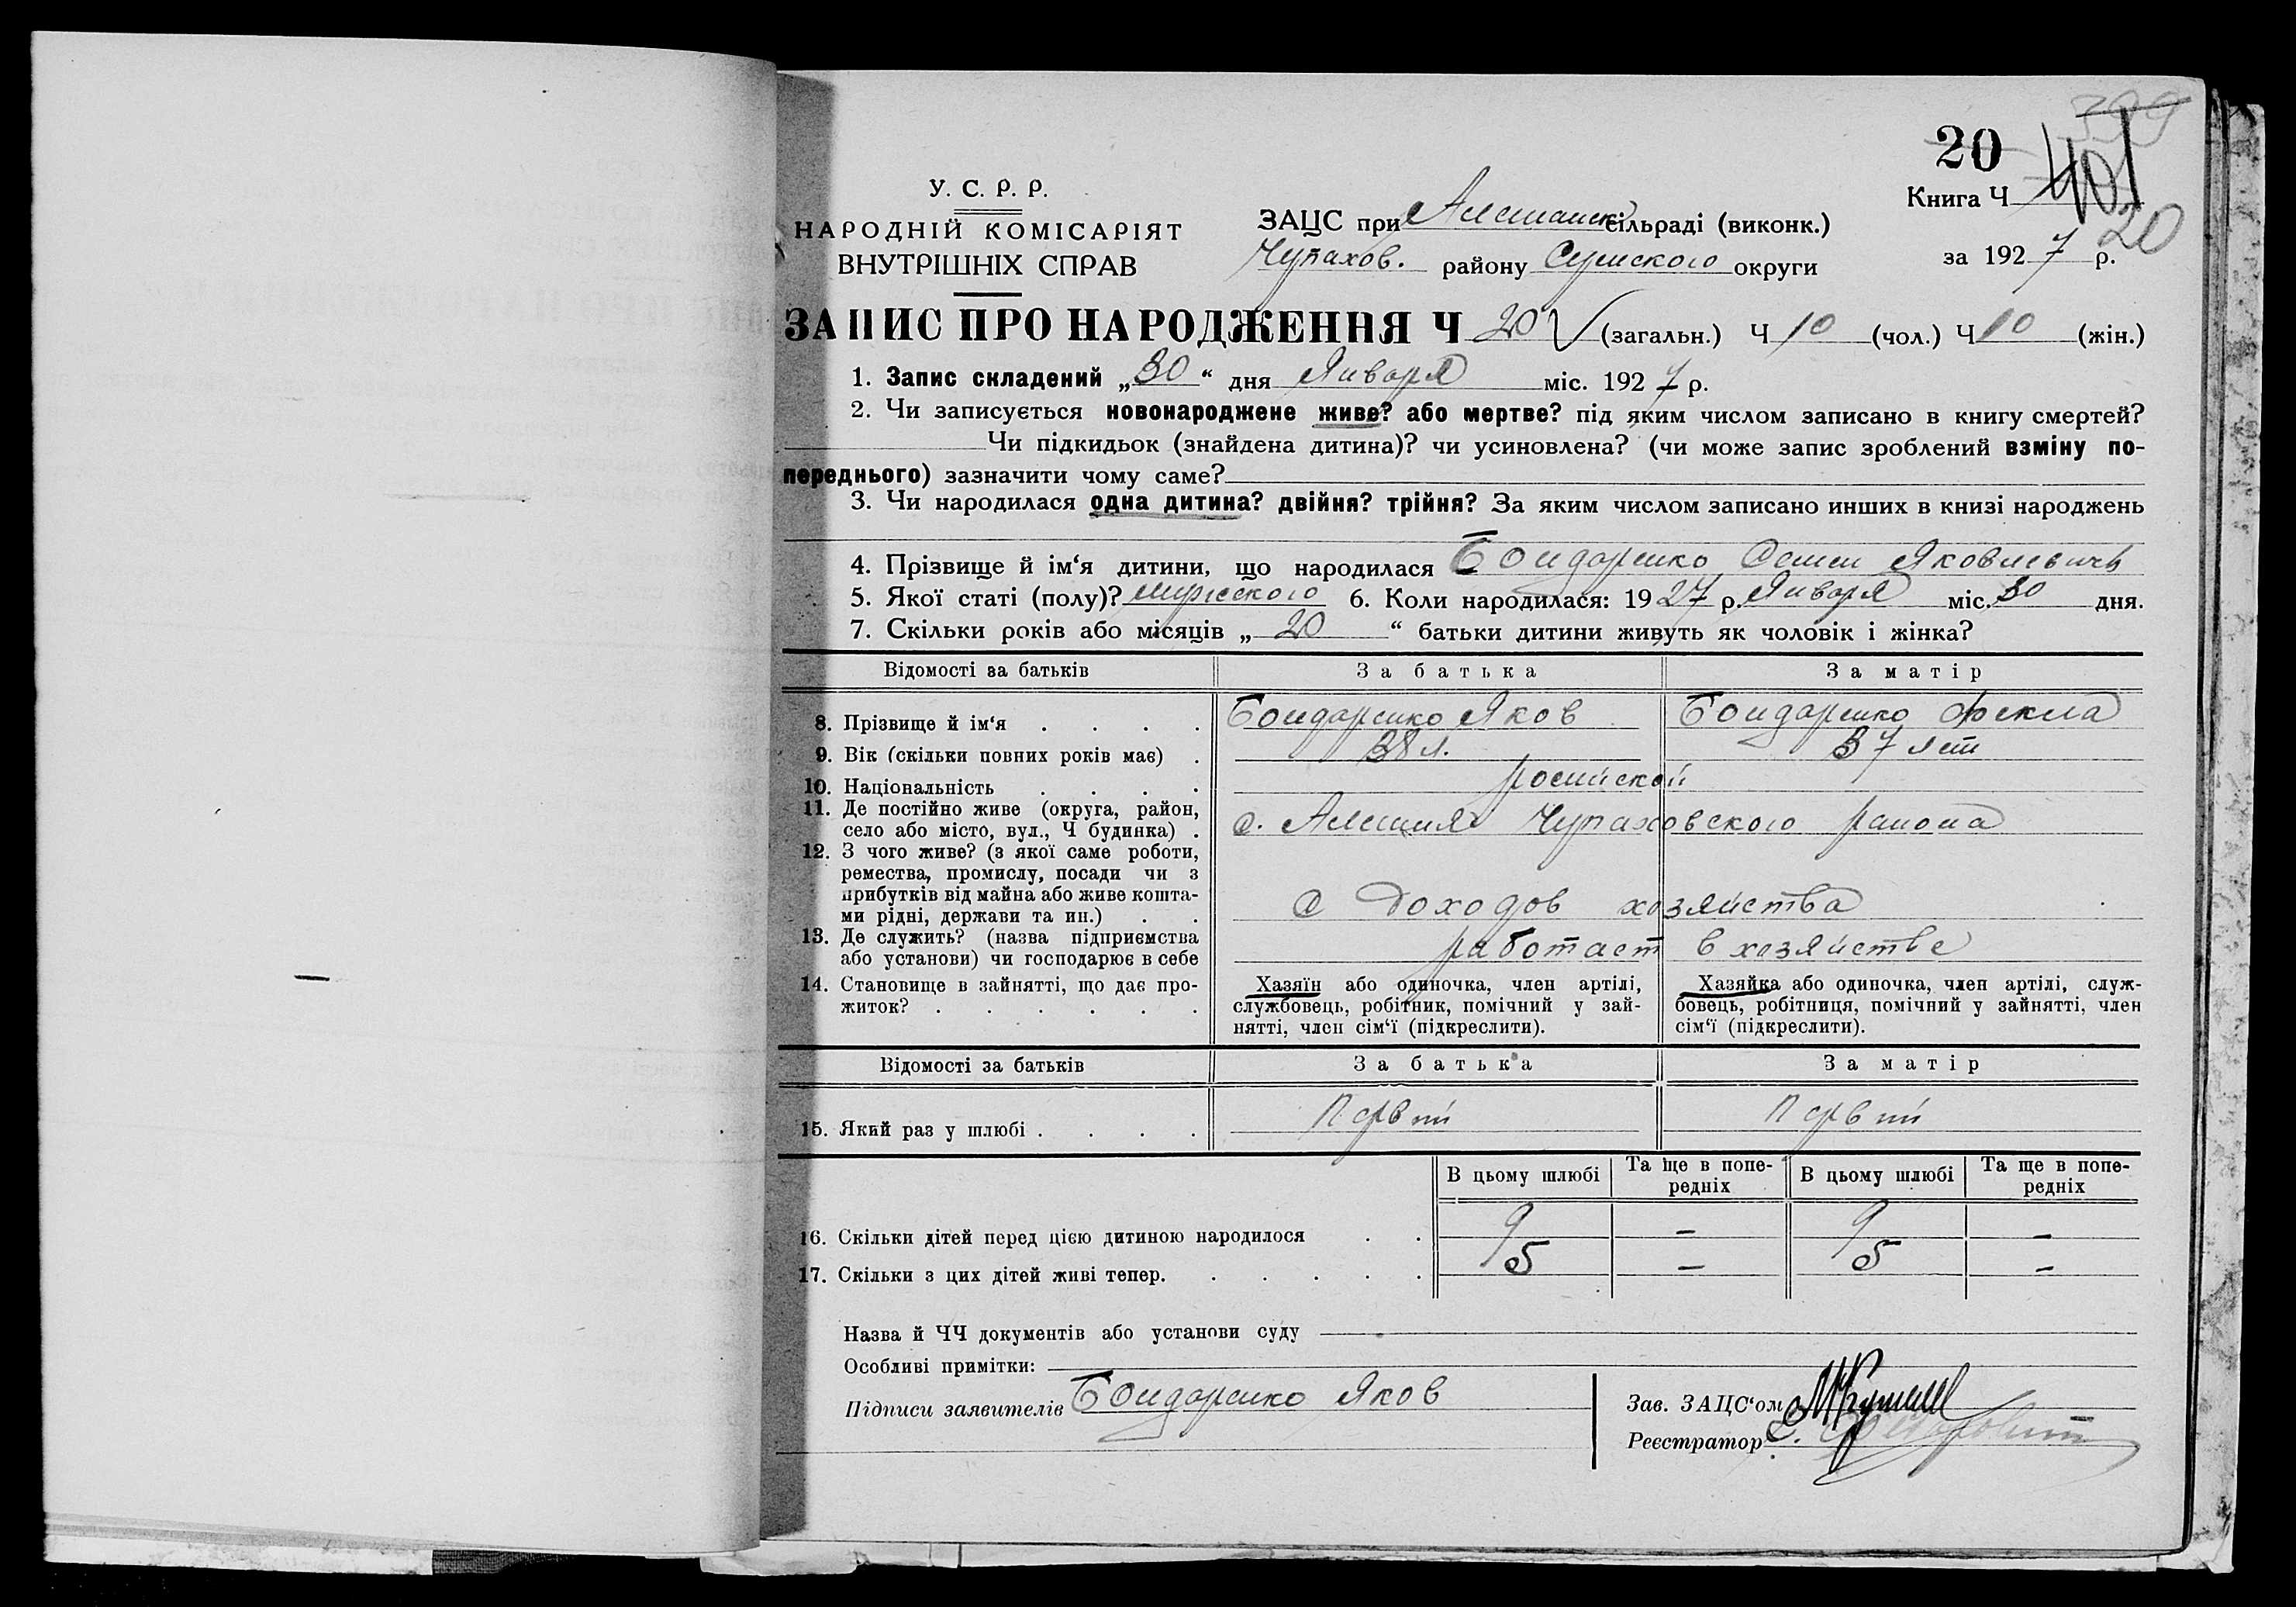 399
20
401
Книга Ч
20
У. С. Р. Р.
НАРОДНІЙ КОМІСАРІЯТ
ВНУТРІШНІХ СПРАВ
ЗАЦС при Алешанск сільраді (виконк.)
Чупахов. району Сумского округи
за 1927 р.
ЗАПИС ПРО НАРОДЖЕННЯ Ч 20 (загальн.) Ч 10 (чол.) Ч 10 (жін.)
1. Запис складений „30“ дня Января міс. 1927 р.
2. Чи записується новонароджене живе? або мертве? під яким числом записано в книгу смертей?
Чи підкидьок (знайдена дитина)? чи усиновлена? (чи може запис зроблений взміну по-
переднього) зазначити чому саме?
3. Чи народилася одна дитина? двійня? трійня? За яким числом записано инших в книзі народжень
4. Прізвище й ім‘я дитини, що народилася Бондаренко Семен Яковлевичь
5. Якої статі (полу)? мужеского 6. Коли народилася: 1927 р. Января міс. 30 дня.
7. Скільки років або місяців „ 20 “ батьки дитини живуть як чоловік і жінка?
Відомості за батьків За батька За матір
8. Прізвище й ім‘я . . . . Бондаренко Яков Бондаренко Фекла
9. Вік (скільки повних років має) . 38 л. 37 лет
10. Національність . . . . росийской
11. Де постійно живе (округа, район,
село або місто, вул., Ч будинка) . с. Алешня Чупаховского района
12. З чого живе? (з якої саме роботи,
ремества, промислу, посади чи з
прибутків від майна або живе кошта-
ми рідні, держави та ин.) . . С доходов хозяйства
13. Де служить? (назва підприємства
або установи) чи господарює в себе работает в хозяйстве
14. Становище в зайнятті, що дає про-
житок? . . . . . .
Хазяїн або одиночка, член артілі,
службовець, робітник, помічний у зай-
нятті, член сім‘ї (підкреслити).
Хазяйка або одиночка, член артілі, служ-
бовець, робітниця, помічний у зайнятті, член
сім‘ї (підкреслити).
Відомості за батьків За батька За матір
15. Який раз у шлюбі . . . . Первый Первый
В цьому шлюбі Та ще в попе-
редніх В цьому шлюбі Та ще в попе-
редніх
16. Скільки дітей перед цією дитиною народилося . . 9 – 9 –
17. Скільки з цих дітей живі тепер. . . . . . 5 – 5 –
Назва й ЧЧ документів або установи суду
Особливі примітки:
Підписи заявителів Бондаренко Яков
Зав. ЗАЦС‘ом
Реєстратор